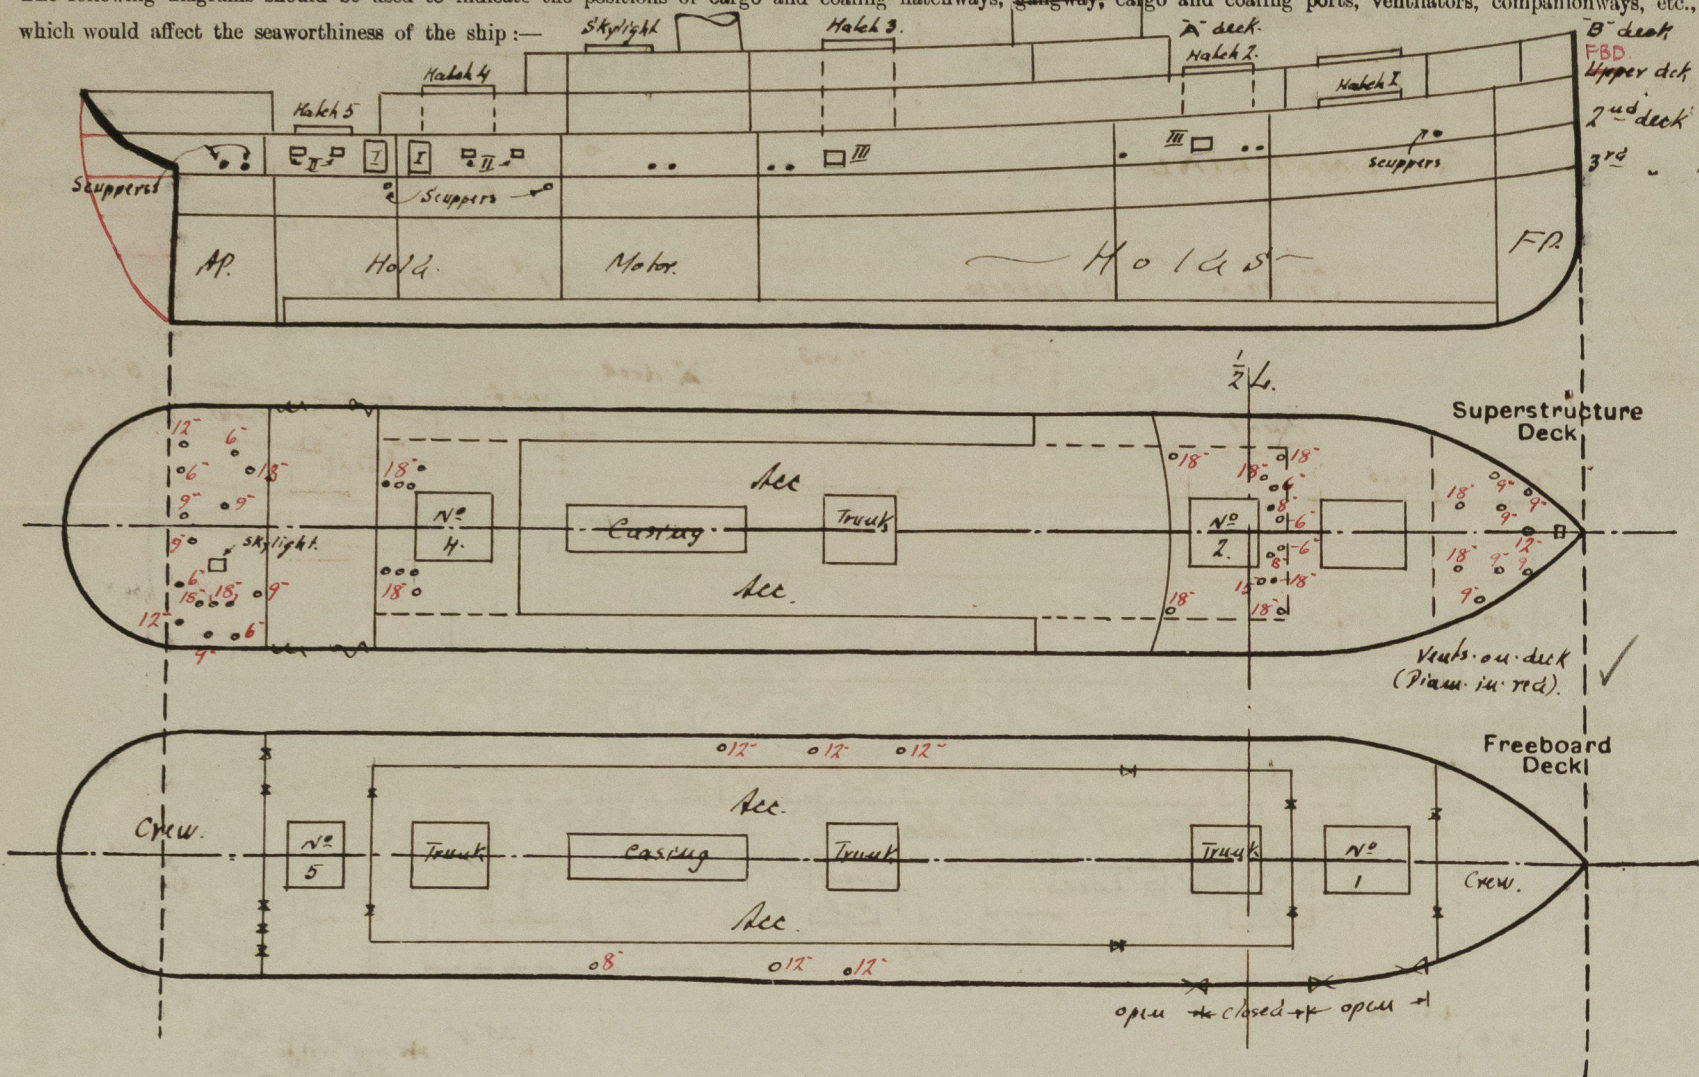 which would affect the seaworthiness of the ship :—
Skylight
Hatch 3.
"A" deck.
"B" deck
FBD
Upper dck
Hatch 4
Hatch 2.
Hatch 1
Hatch 5
2nd deck
3rd "
II
I
I
II
III
III
Scuppers
Scuppers
scuppers
AP.
Hold.
Motor.
Holds
FP.
1/2 L.
Superstructure
Deck
12"
6"
6"
18"
9"
9"
9"
skylight.
6"
15"
18"
9"
12"
6"
9"
18"
18"
No
4.
Acc
Casing
Acc.
Trunk
18"
18"
18"
6"
8"
6"
6"
8"
15"
18"
18"
18"
No
2.
18"
9"
9"
9"
12"
18"
9"
9"
9"
Vents. on. deck
(Diam. in. red).
Freeboard
Deck
12"
12"
12"
Crew.
No
5
Acc.
Trunk
Casing
Trunk
Trunk
No
1
Crew.
Acc.
8"
12"
12"
open closed open